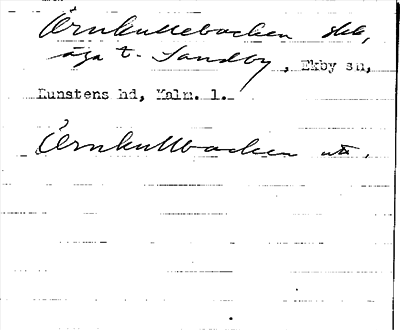 Örnkullebacken
äga t. Sandby, Ekby sn,
Kunstens hd, Malm. l.
Örnkullbacken